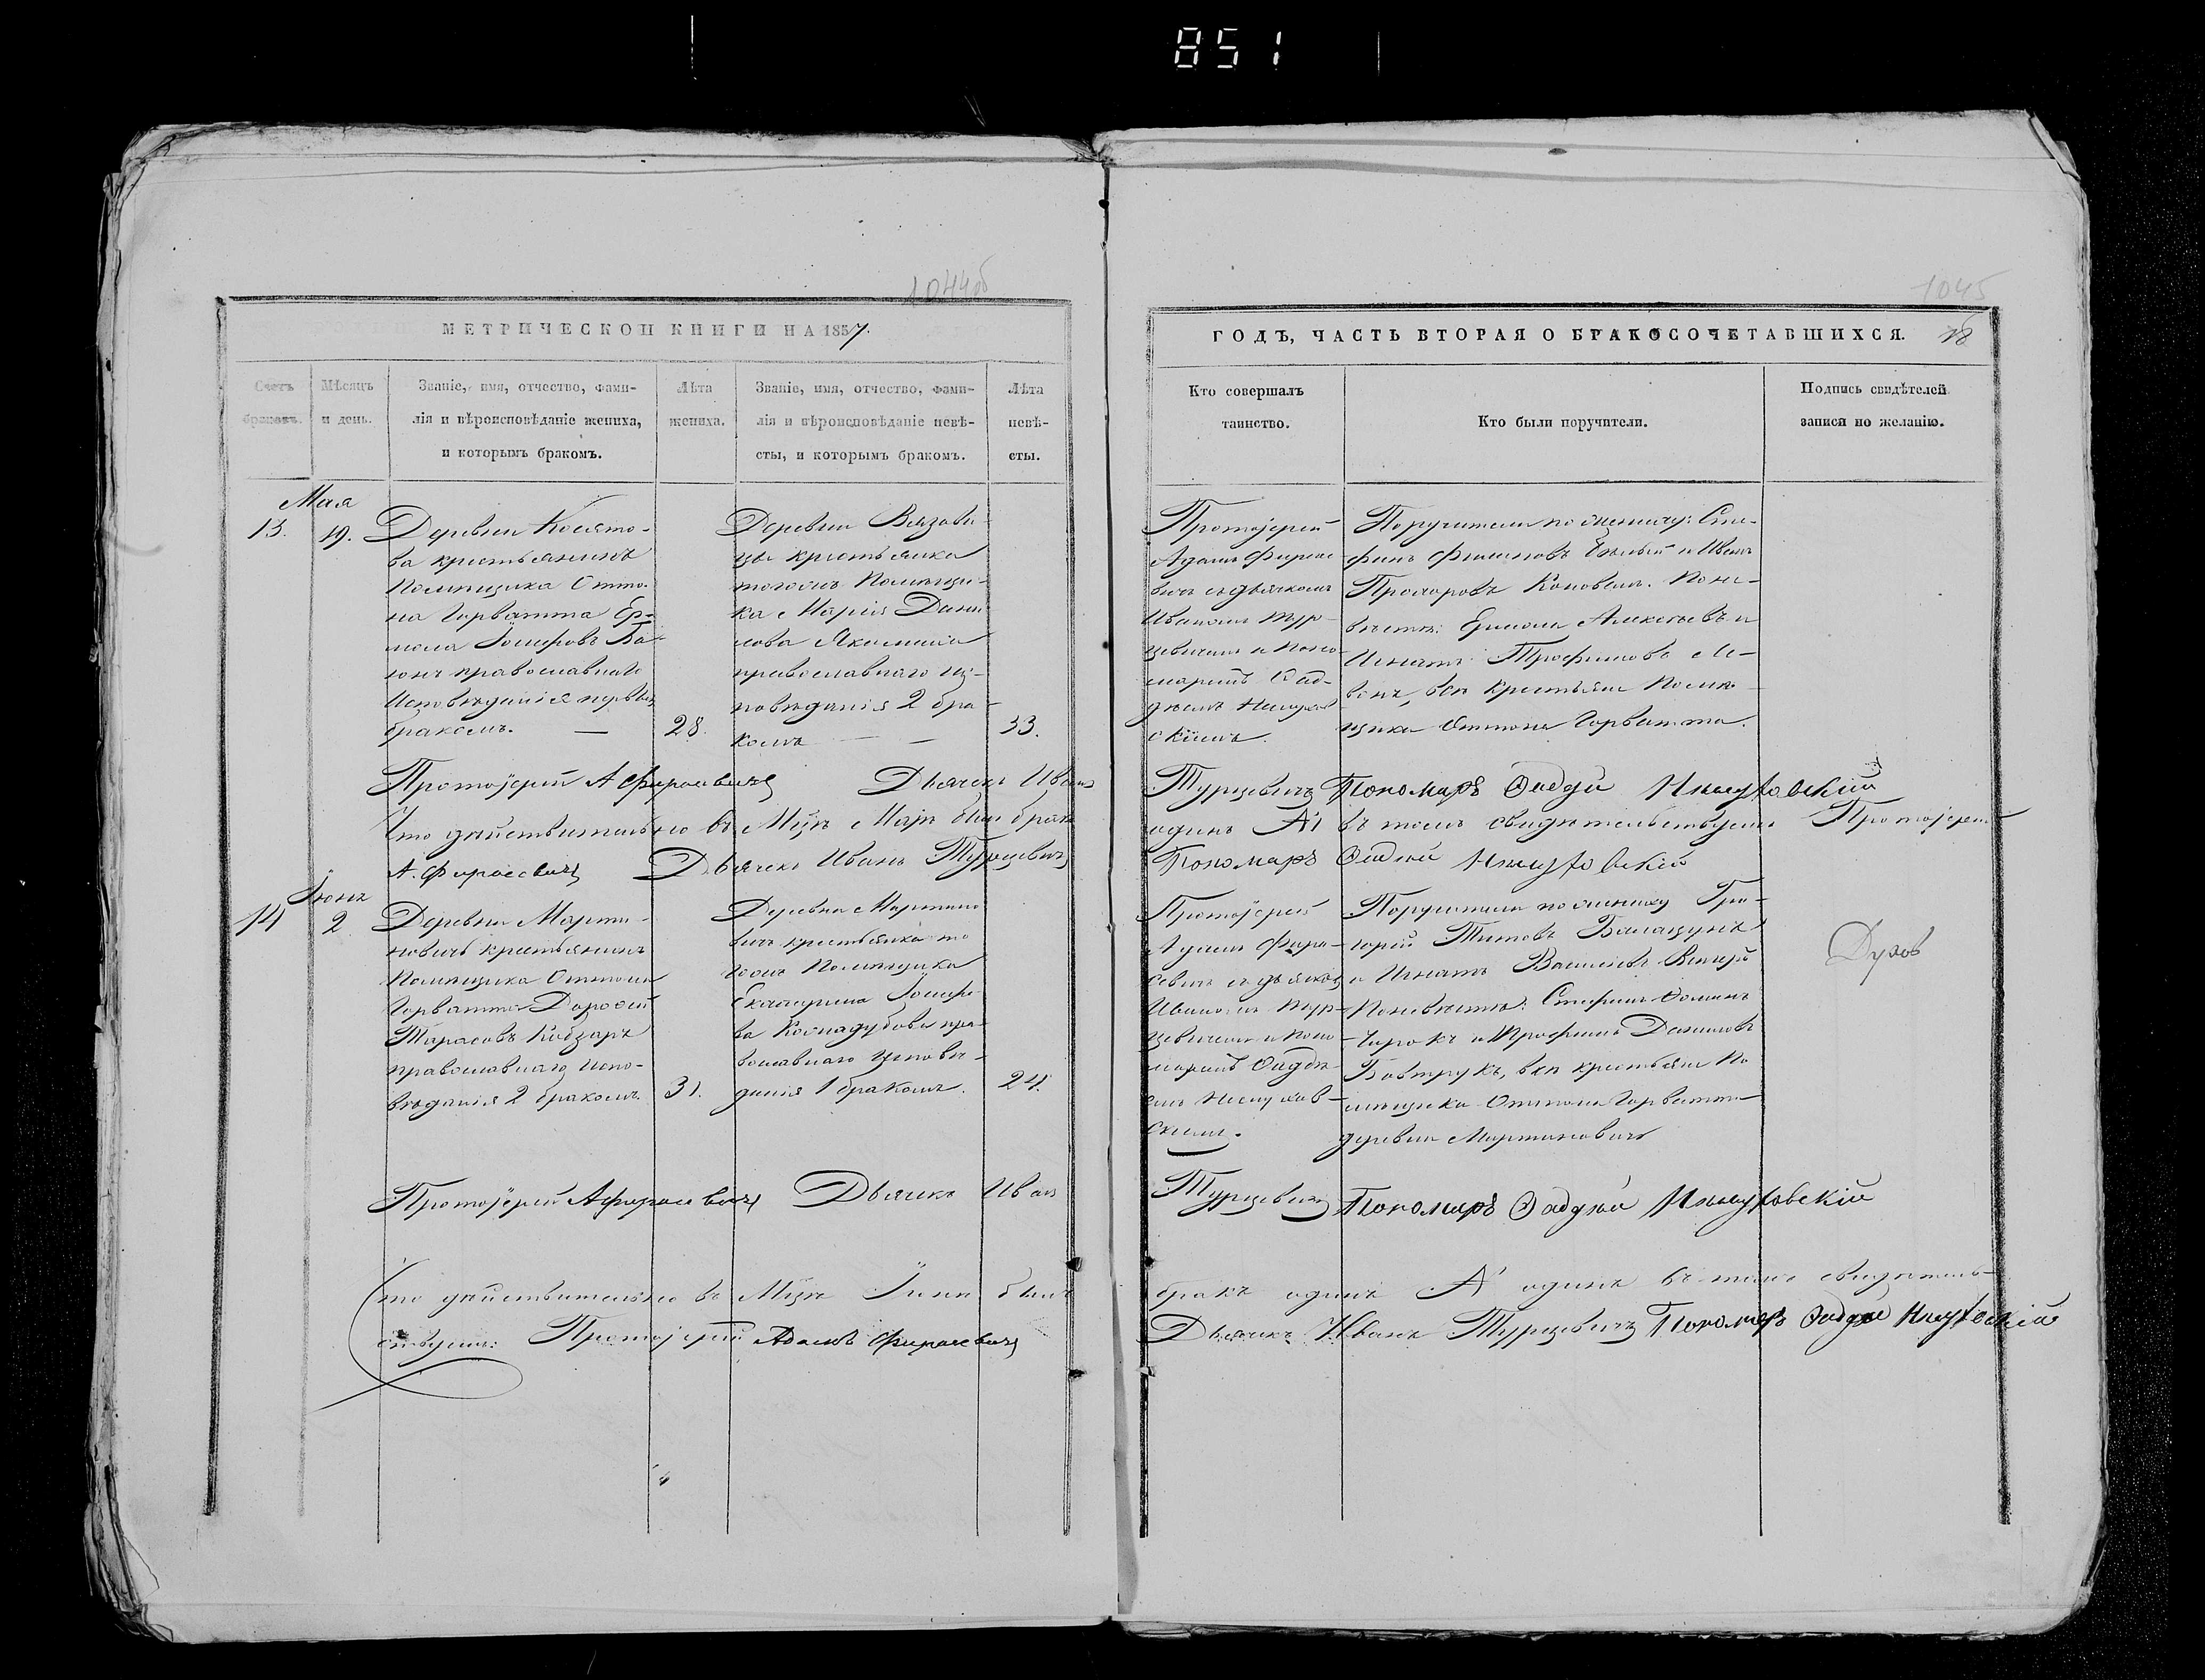 851
1044об
МЕТРИЧЕСКОЙ КНИГИ НА 1857.
Счетъ браковъ.
Мѣсяцъ и день.
Званіе, имя, отчество, фами-
лія и вѣроисповѣданіе жениха,
и которымъ бракомъ.
Лѣта
жениха.
Званіе, имя, отчество, фами-
лія и вѣроисповѣданіе невѣ-
сты, и которымъ бракомъ.
Лѣта
невѣ-
сты.
Мая
13. 19.
Деревни
крестьянинъ
Помѣщика Отто-
на Горватта Ер-
мола Іосифовъ Ба-
православнаго
Исповѣданія первымъ
бракомъ. —
28.
Деревни
цы крестьянка
тогожъ Помѣщи-
ка Марія Дани-
лова
православнаго ис-
повѣданія 2 бра-
комъ — —
33.
Протоіерей А Фирасевичъ Дьячекъ Иванъ
Что дѣйствительно въ Мцѣ Маѣ былъ бракъ
А. Фирасевичъ Дьячекъ Иванъ Турцевичъ
Іюнь
14 2
Деревни Марти-
новичъ крестьянинъ
Помѣщика Оттона
Горватта Дорофей
Тарасовъ Кобзарь
православнаго испо-
вѣданія 2 бракомъ.
31.
Деревни Мартино
вичъ крестьянка то
гожъ Помѣщика
Екатерина Іосифо-
ва пра-
вославнаго исповѣ-
данія 1 бракомъ.
24.
Протоіерей А Фирасевичъ Дьячекъ Иванъ
что дѣйствительно въ Мцѣ Іюнѣ былъ
ствуемъ: Протоіерей Адамъ Фирасевичъ
1045
ГОДЪ, ЧАСТЬ ВТОРАЯ О БРАКОСОЧЕТАВШИХСЯ.
Кто совершалъ
таинство.
Кто были поручители.
Подпись свидѣтелей
записи по желанію.
Протоіерей
Адамъ Фирасе
вичъ съ дьячкомъ
Иваномъ Тур-
цевичемъ и поно-
маремъ Фад-
скимъ.
Поручители по жениху: Сте-
фанъ и Иванъ
Прохоровъ По не-
вѣстѣ: Ермола Алексѣевъ и
Игнатъ Трофимовъ
всѣ крестьяне Помѣ-
щика Оттона Горватта.
Турцевичъ Пономарь Фадѣй
одинъ А1 въ томъ свидѣтельствуемъ Протоіерей
Пономарь Фадѣй
Протоіерей
Адамъ Фира-
севичъ съ дьячком
Иваномъ Тур-
цевичемъ и поно-
маремъ Фадѣе-
скимъ.
Поручители по жениху Гри-
горій Титовъ
и Игнатъ Василіевъ
По невѣстѣ: Стефанъ
и Трофимъ Даниловъ
всѣ крестьяне По
мѣщика Оттона Горватта
деревни Мартиновичъ
Духов
Турцевичъ Пономарь Фадѣй
бракъ одинъ А1 одинъ въ томъ свидѣтель-
Дьячекъ Иванъ Турцевичъ Пономарь Фадѣй